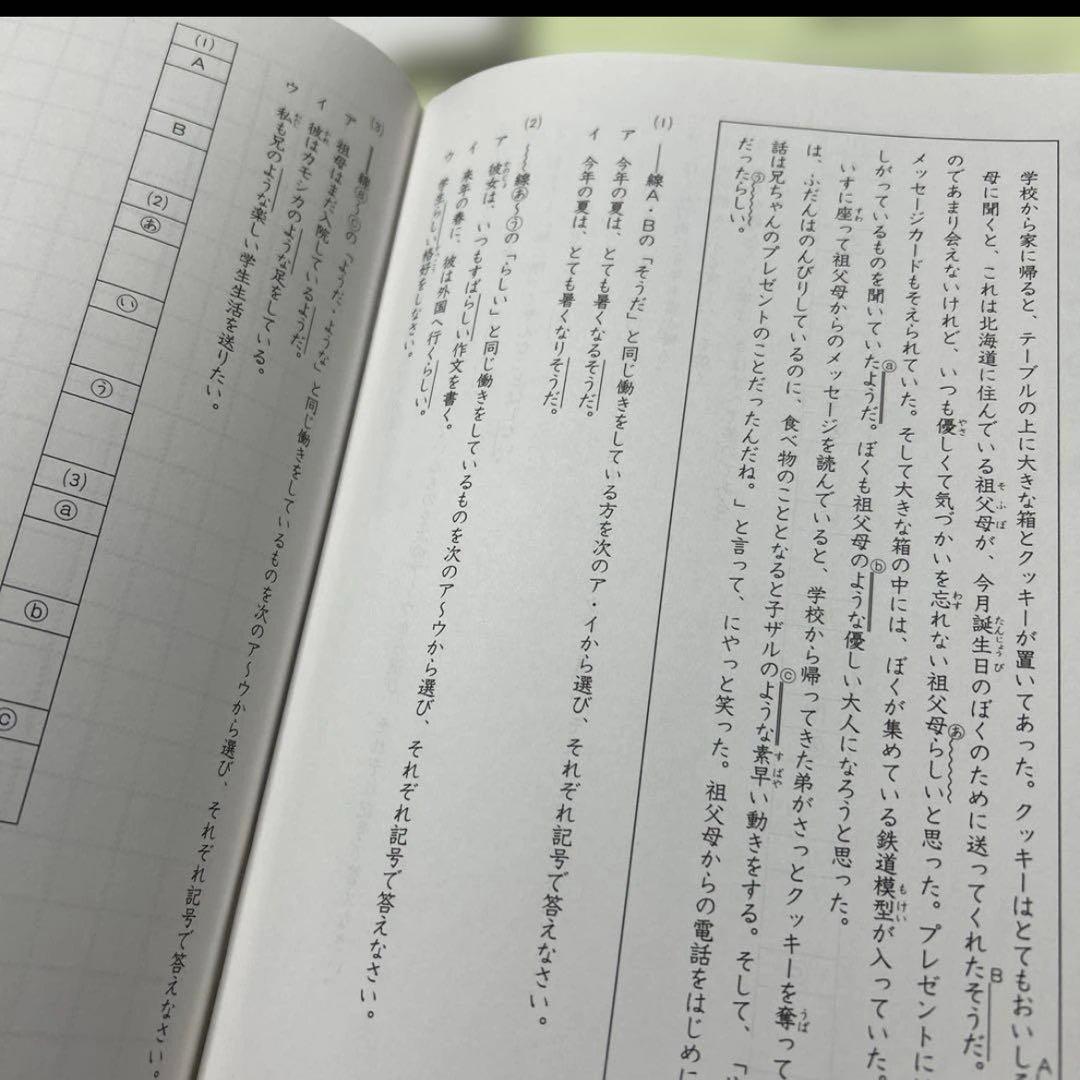 学校から家に帰ると、テーブルの上に大きな箱とクッキーが置いてあった。クッキーはとてもおいし
A
母に聞くと、これは北海道に住んでいる祖父母が、今月誕生日のぼくのために送ってくれたそうだ。
そふぼ
たんじょうび
B
のであまり会えないけれど、いつも優しくて気づかいを忘れない祖父母らしいと思った。プレゼントに
やさ
わす
あ
メッセージカードもそえられていた。そして大きな箱の中には、ぼくが集めている鉄道模型が入っていた。
もけい
しがっているものを聞いていたようだ。ぼくも祖父母のような優しい大人になろうと思った。
a
b
いすに座って祖父母からのメッセージを読んでいると、学校から帰ってきた弟がさっとクッキーを奪って
すわ
うば
は、ふだんはのんびりしているのに、食べ物のこととなると子ザルのような素早い動きをする。そして、「
c
すばや
話は兄ちゃんのプレゼントのことだったんだね。」と言って、にやっと笑った。祖父母からの電話をはじめに
だったらしい。
う
(1) ――線A・Bの「そうだ」と同じ働きをしている方を次のア・イから選び、それぞれ記号で答えなさい。
ア 今年の夏は、とても暑くなるそうだ。
イ 今年の夏は、とても暑くなりそうだ。
(2) 〜〜線あ〜うの「らしい」と同じ働きをしているものを次のア〜ウから選び、それぞれ記号で答えなさい。
ア 彼女は、いつもすばらしい作文を書く。
かのじょ
イ 来年の春に、彼は外国へ行くらしい。
ウ 学生らしい格好をしなさい。
(3) ――線a〜cの「ようだ・ような」と同じ働きをしているものを次のア〜ウから選び、それぞれ記号で答えなさい。
ア 祖母はまだ入院しているようだ。
イ 彼はカモシカのような足をしている。
かれ
ウ 私も兄のような楽しい学生生活を送りたい。
(1)
A
B
(2)
あ
い
う
(3)
a
b
c